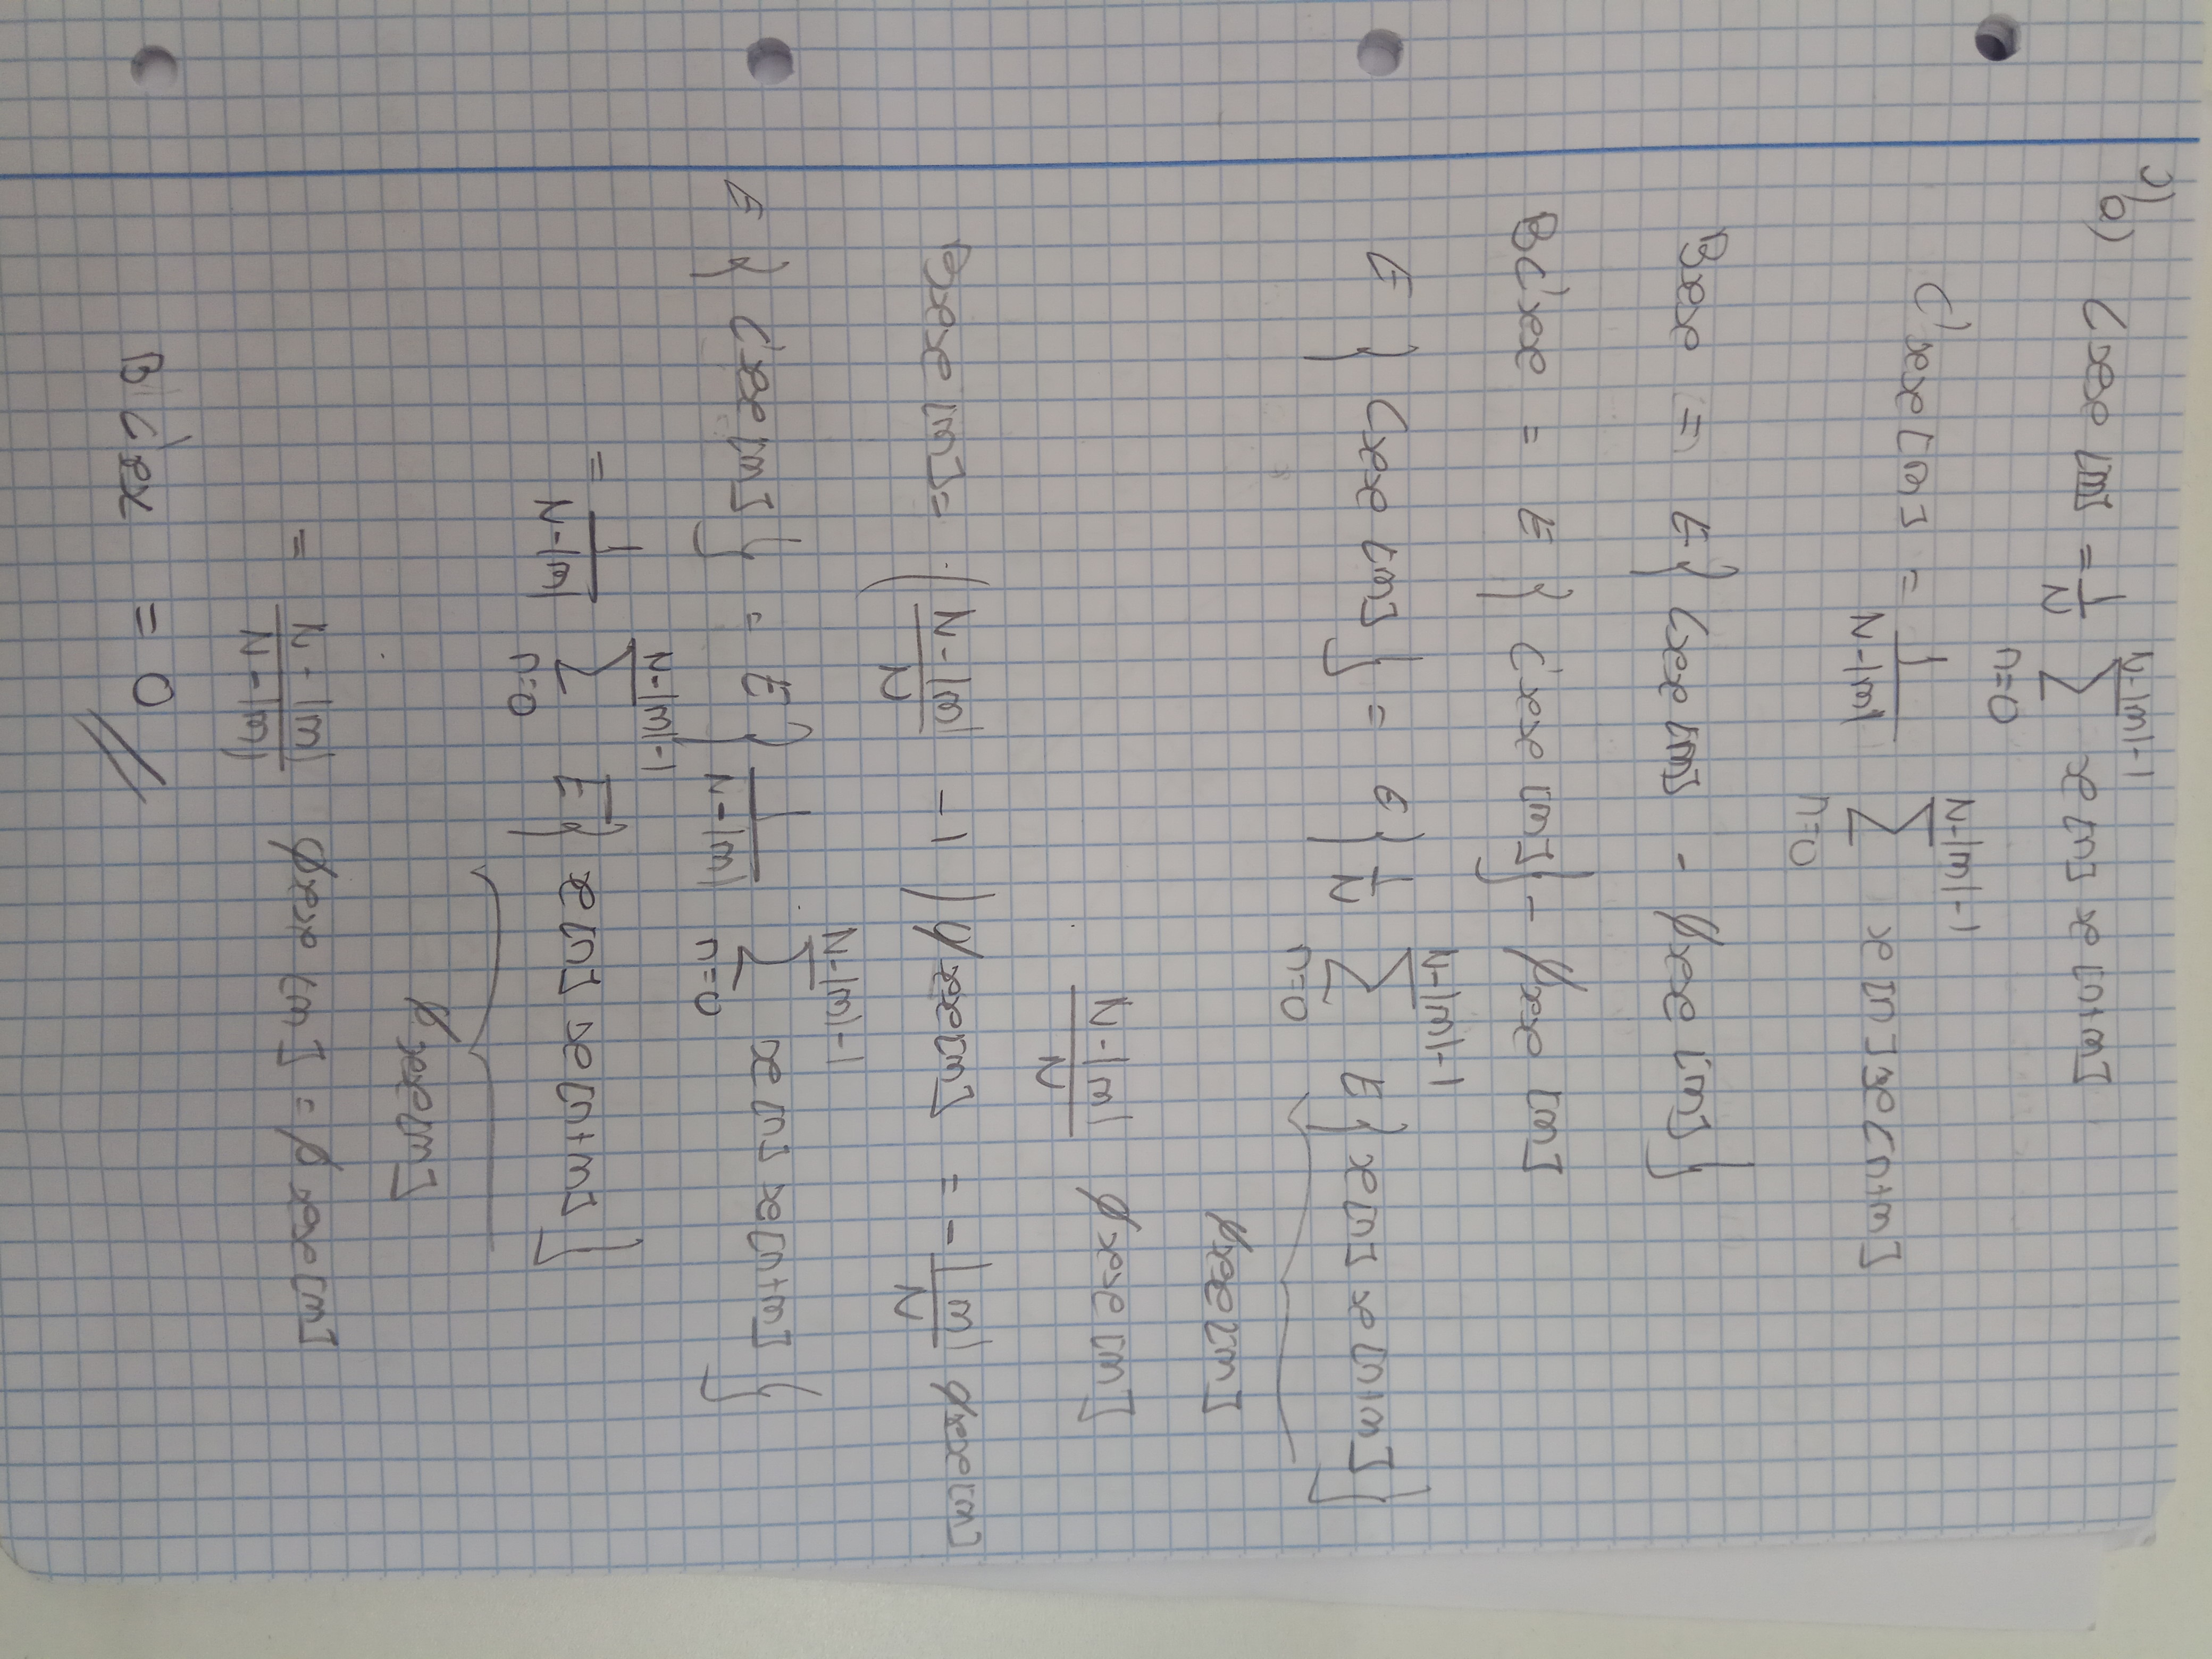 c)
a) Cxx[m] = 1/N ∑_{n=0}^{N-|m|-1} x[n] x[n+m]
C'xx[m] = 1/(N-|m|) ∑_{n=0}^{N-|m|-1} x[n] x[n+m]
Bxx = E{ Cxx[m] - ϕxx[m] }
BC'xx = E { C'xx[m] } - ϕxx[m]
E { Cxx[m] } = E { 1/N ∑_{n=0}^{N-|m|-1} E { x[n] x[n+m] }
ϕxx[m]
(N-|m|)/N ϕxx[m]
Bxx[m] = ( (N-|m|)/N - 1 ) ϕxx[m] = - |m|/N ϕxx[m]
E { C'xx[m] } = E { 1/(N-|m|) ∑_{n=0}^{N-|m|-1} x[n] x[n+m] }
= 1/(N-|m|) ∑_{n=0}^{N-|m|-1} E { x[n] x[n+m] }
ϕxx[m]
= (N-|m|)/(N-|m|) ϕxx[m] = ϕxx[m]
BC'xx = 0 //